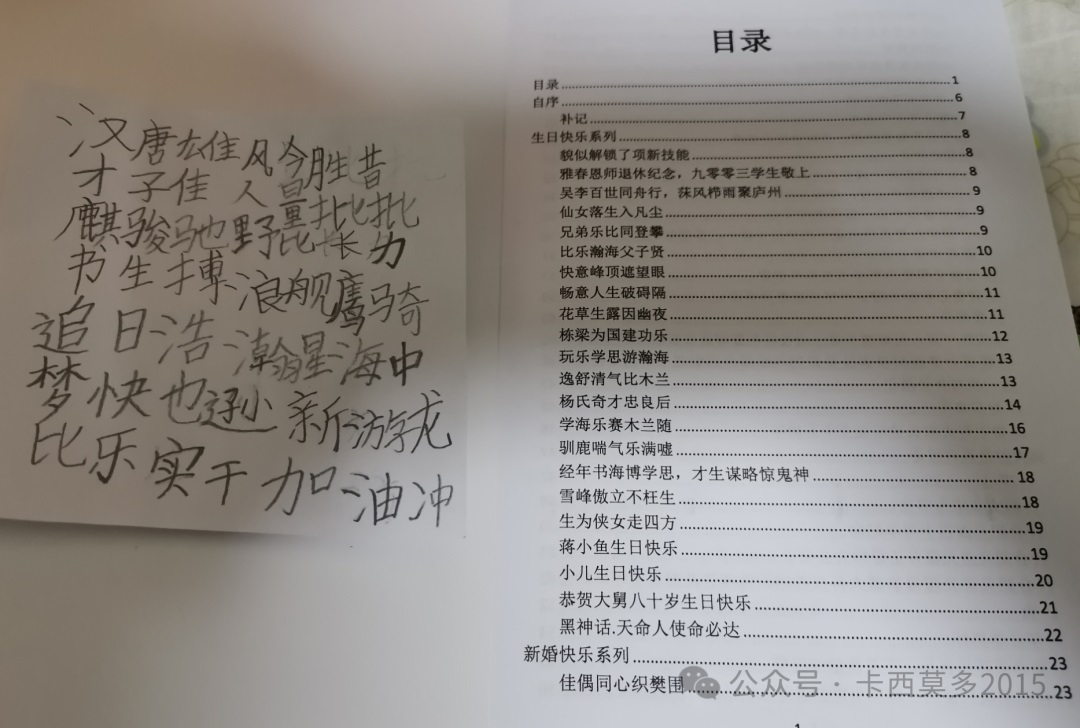 汉唐雄佳风今胜昔
才子佳人量批批
麒骏驰野昆长力
书生搏浪舰鹰骑
追日浩瀚星海中
梦快也逊新游龙
比乐实干加油冲
目录
目录 1
自序 6
补记 7
生日快乐系列 8
貌似解锁了项新技能 8
雅春恩师退休纪念，九零零三学生敬上 8
吴李百世同舟行，莯风栉雨聚庐州 9
仙女落生入凡尘 9
兄弟乐比同登攀 9
比乐瀚海父子贤 10
快意峰顶遮望眼 10
畅意人生破碍隔 11
花草生露因幽夜 11
栋梁为国建功乐 12
玩乐学思游瀚海 13
逸舒清气比木兰 13
杨氏奇才忠良后 14
学海乐赛木兰随 16
驯鹿喘气乐满嘘 17
经年书海博学思，才生谋略惊鬼神 18
雪峰傲立不枉生 18
生为侠女走四方 19
蒋小鱼生日快乐 19
小儿生日快乐 20
恭贺大舅八十岁生日快乐 21
黑神话.天命人使命必达 22
新婚快乐系列 23
佳偶同心织樊圃 23
公众号 · 卡西莫多2015
1